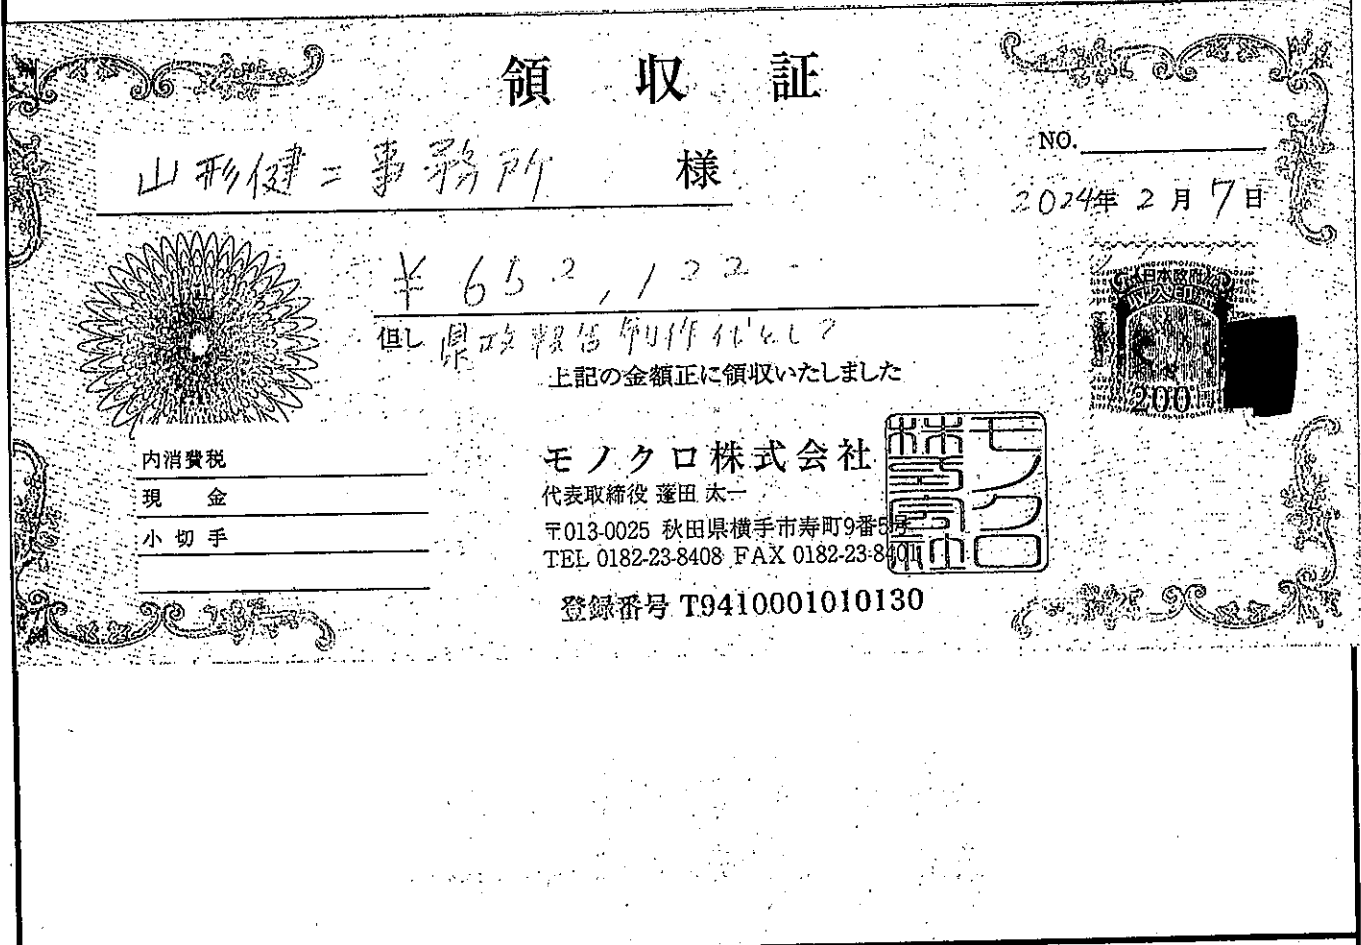 領 収 証
山形健二事務所 様
NO.
2024年 2月 7日
¥652,122-
但し 県政報告制作代として
上記の金額正に領収いたしました
日本政府
収入印紙
200
内消費税
現 金
小切手
モノクロ株式会社
代表取締役 蓬田 太一
〒013-0025 秋田県横手市寿町9番5号
TEL 0182-23-8408 FAX 0182-23-8401
登録番号 T9410001010130
モノクロ
株式会社